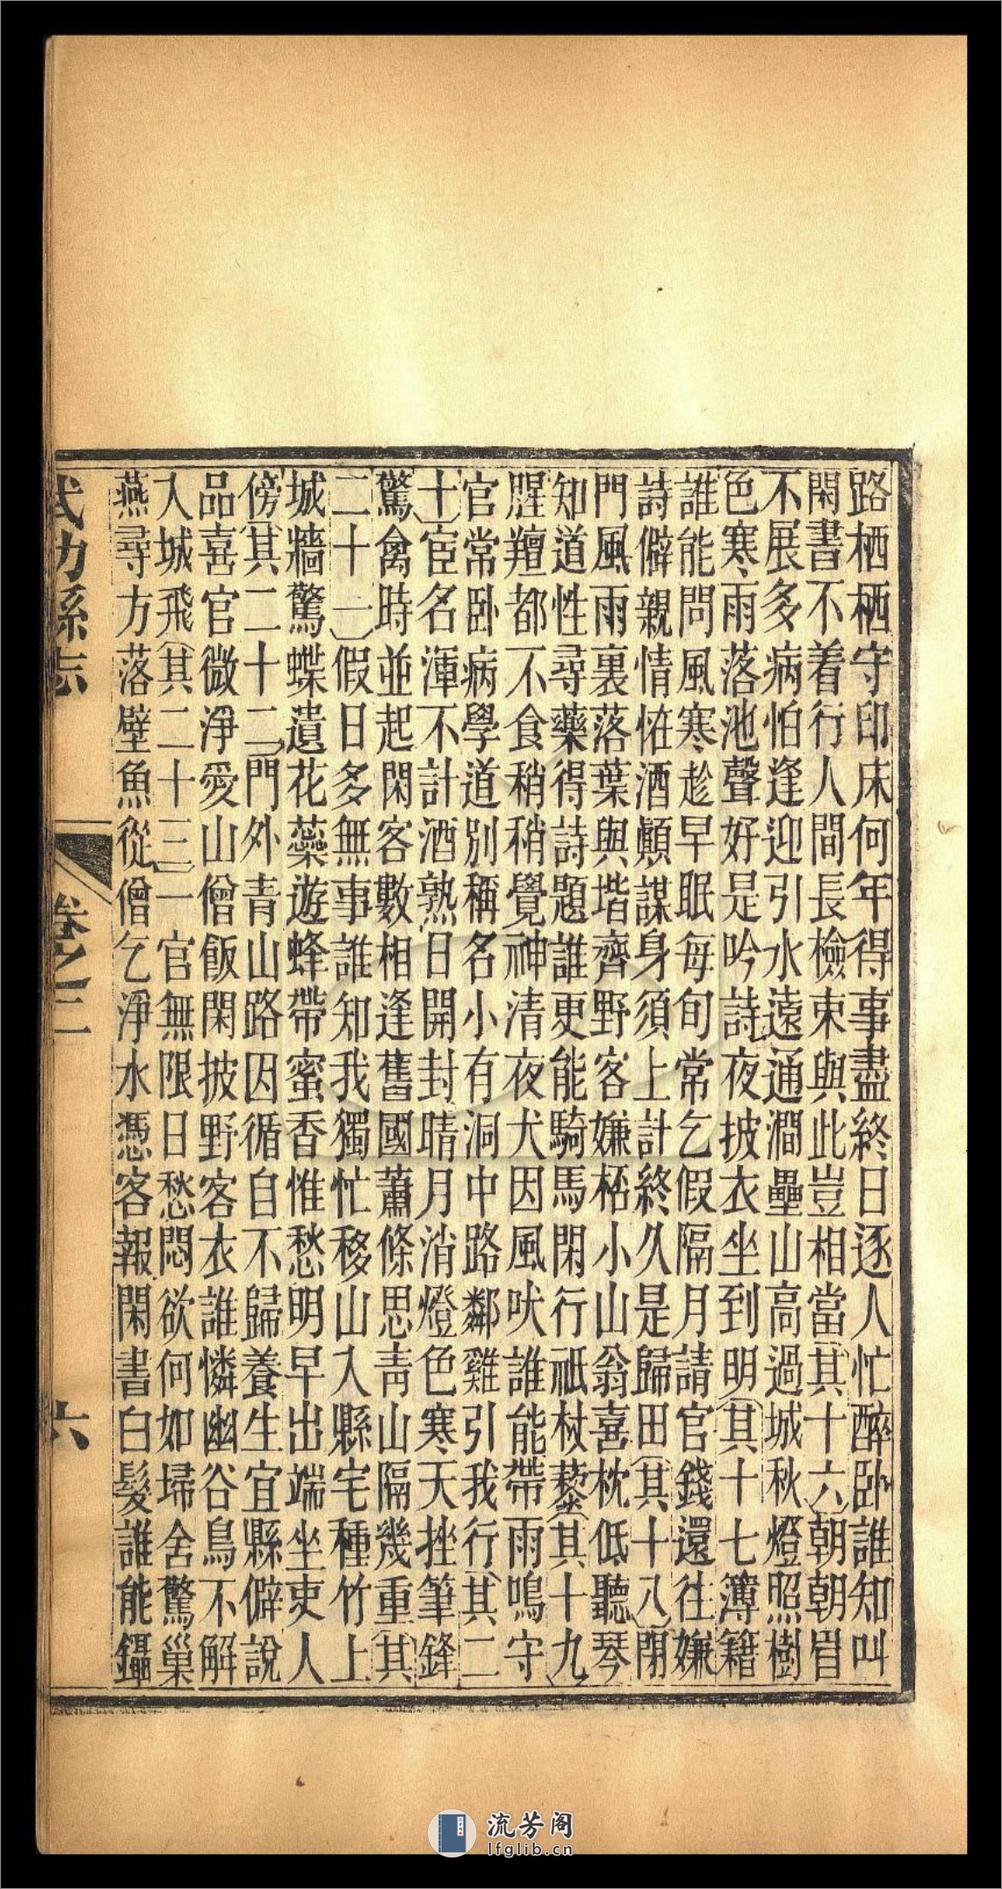 路栖栖守印床何年得事盡終日逐人忙醉卧誰知叫
閑書不着行人間長檢束與此豈相當其十六朝朝眉
不展多病怕逢迎引水遠通澗壘山高過城秋燈照樹
色寒雨落池聲好是吟詩夜披衣坐到明其十七簿籍
誰能問風寒趁早眠每旬常乞假隔月請官錢還往嫌
詩僻親情恠酒顛謀身須上計終久是歸田其十八閉
門風雨裏落葉與堦齊野客嫌桮小山翁喜枕低聽琴
知道性尋藥得詩題誰更能騎馬閑行祇杖藜其十九
腥羶都不食稍稍覺神清夜犬因風吠誰能帶雨鳴守
官常卧病學道別稱名小有洞中路鄰雞引我行其二
十宦名渾不計酒熟日開封晴月消燈色寒天挫筆鋒
驚禽時並起閑客數相逢舊國蕭條思青山隔幾重其
二十一假日多無事誰知我獨忙移山入縣宅種竹上
城牆驚蝶遺花蘂遊蜂帶蜜香惟愁明早出端坐吏人
傍其二十二門外青山路因循自不歸養生宜縣僻說
品喜官微淨愛山僧飯閑披野客衣誰憐幽谷鳥不解
入城飛其二十三一官無限日愁悶欲何如埽舍驚巢
燕尋方落壁魚從僧乞淨水憑客報閑書白髮誰能鑷
武功縣志 卷之三 六
流芳阁
lfglib.cn